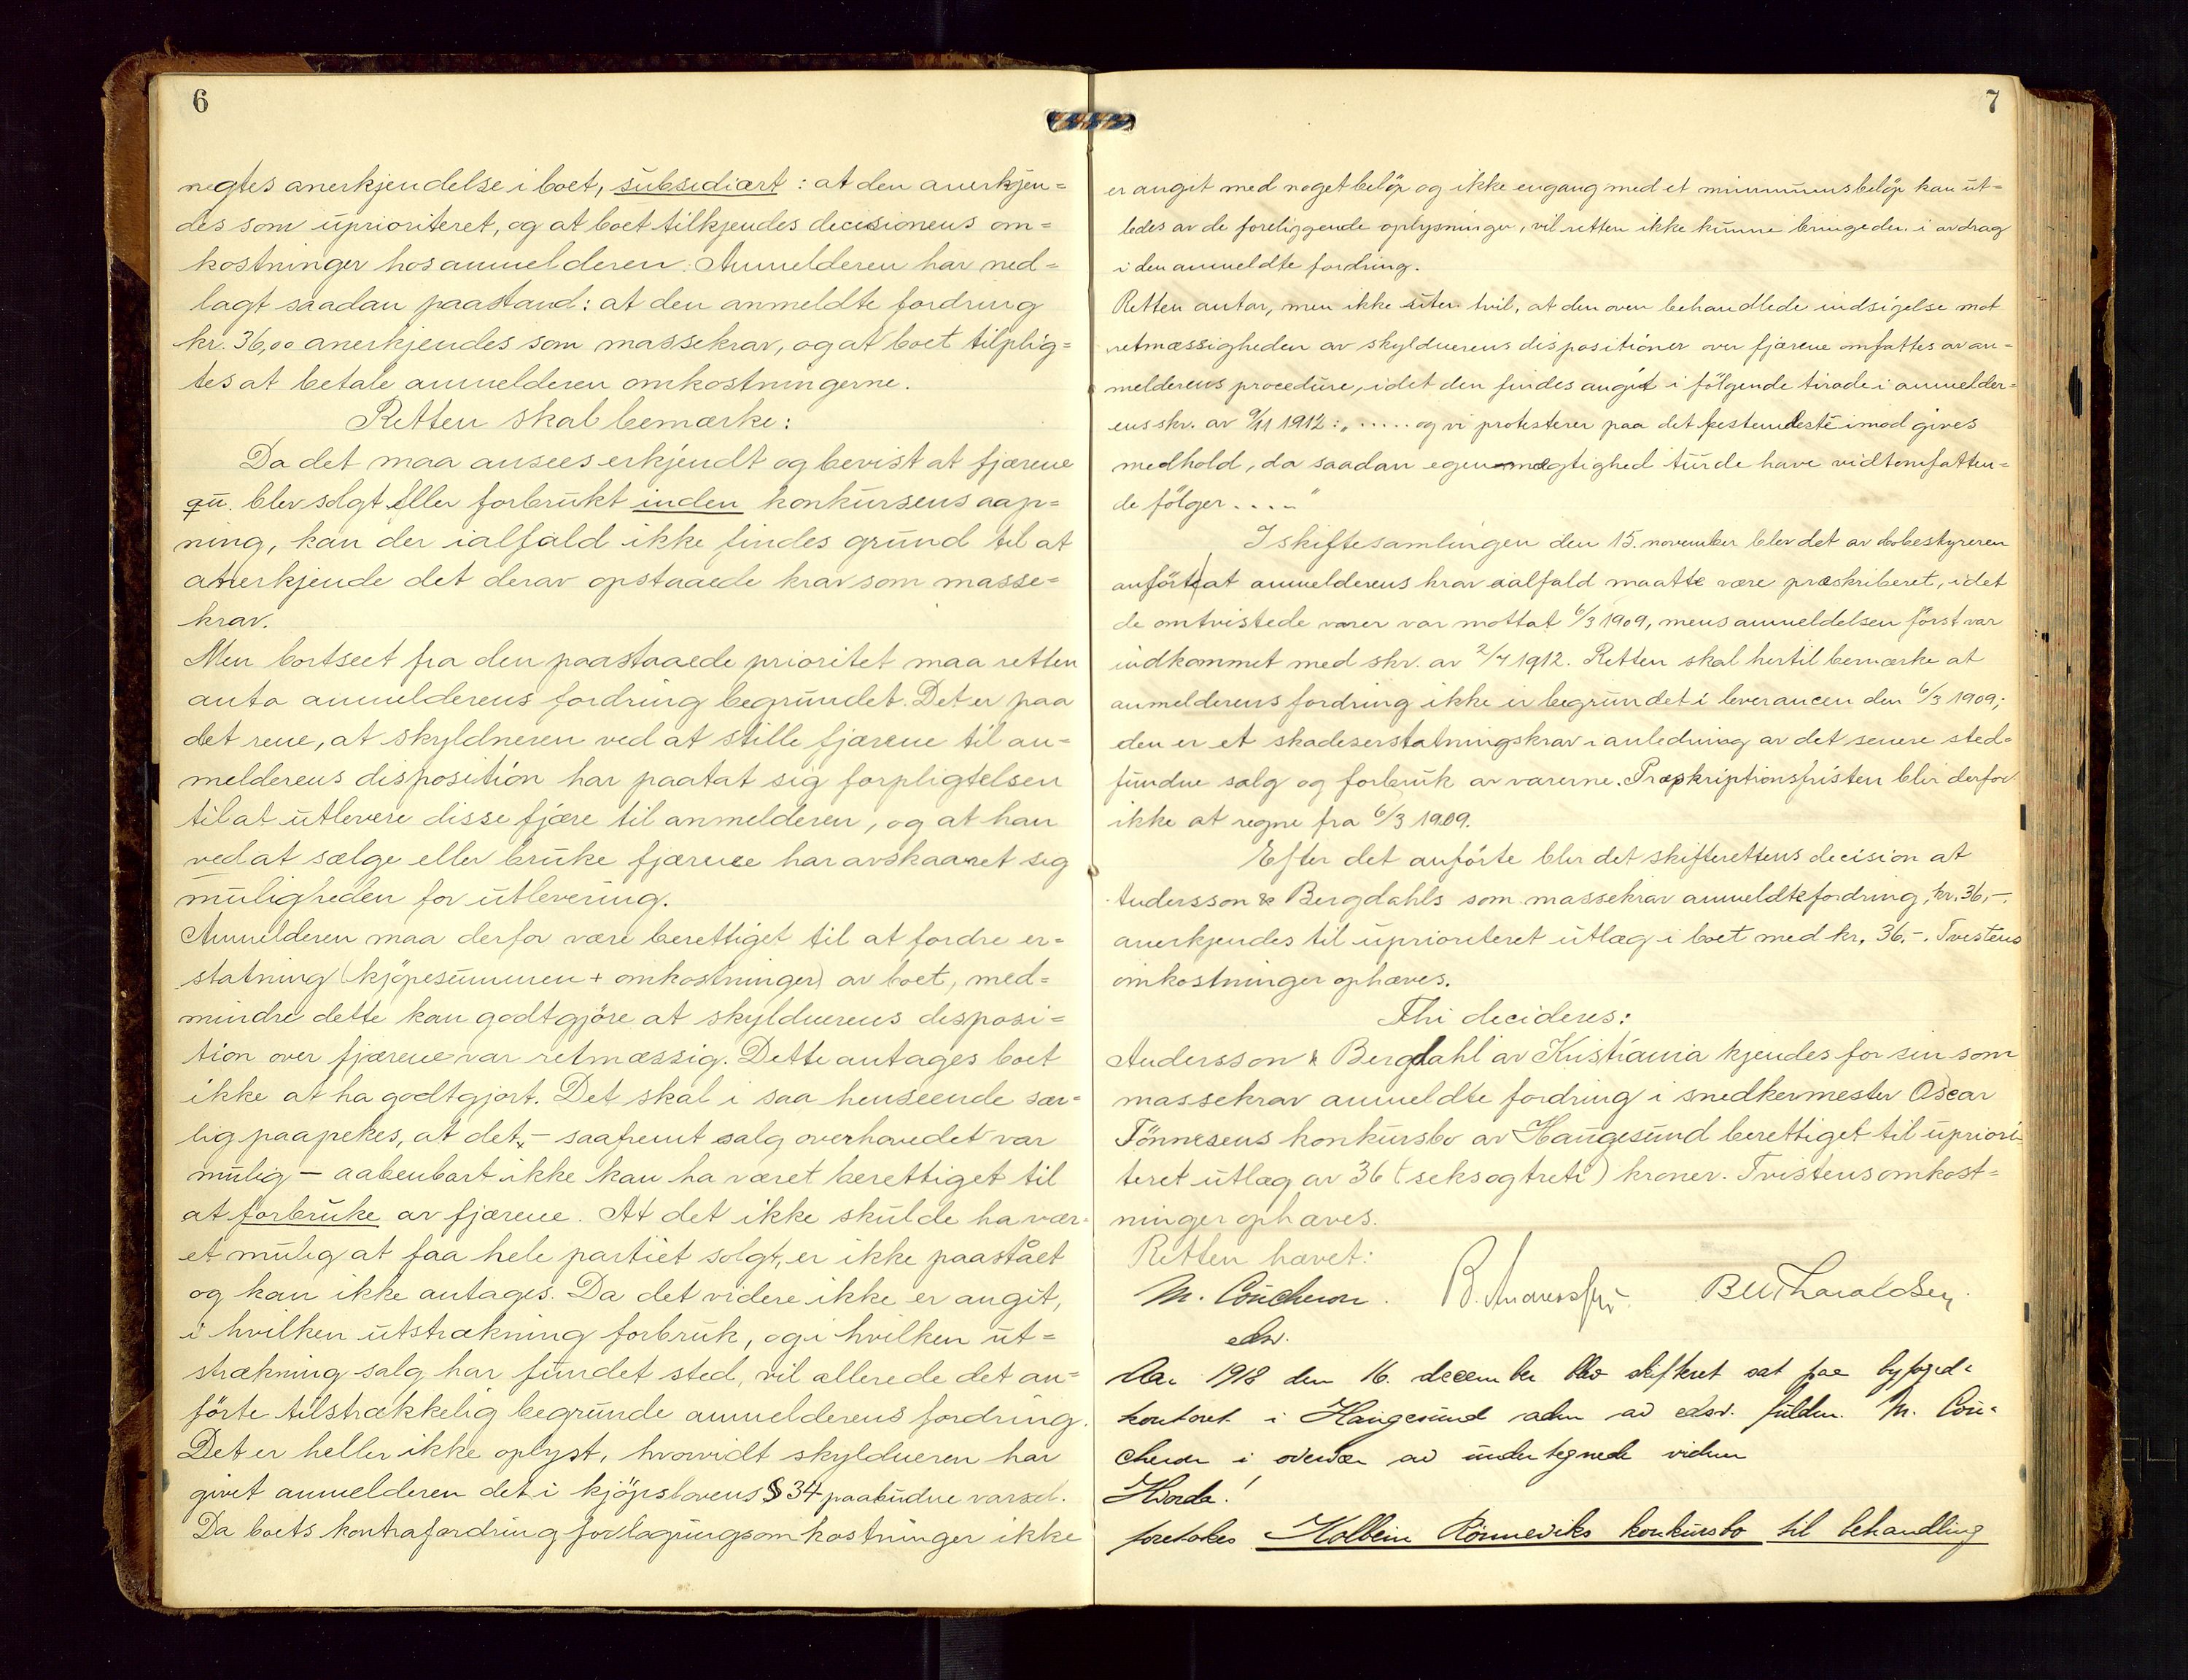 6
negtes anerkjendelse i boet, subsidiært: at den anerkjen=
des som uprioriteret, og at boet tilkjendes decisionens om=
kostninger hos anmelderen. Anmelderen har ned=
lagt saadan paastand: at den anmeldte fordring
kr. 36,00 anerkjendes som massekrav, og at boet tilplig=
tes at betale anmelderen omkostningerne.
Retten skal bemærke:
Da det maa ansees erkjendt og bevist at fjærene
qu. blev solgt eller forbrukt inden konkursens aap=
ning, kan der ialfald ikke findes grund til at
anerkjende det derav opstaaede krav som masse=
krav.
Men bortseet fra den paastaaede prioritet maa retten
anta anmelderens fordring begrundet. Det er paa
det rene, at skyldneren ved at stille fjærene til an=
melderens disposition har paatat sig forpligtelsen
til at utlevere disse fjære til anmelderen, og at han
ved at sælge eller bruke fjærene har avskaaret sig
muligheden for utlevering.
Anmelderen maa derfor være berettiget til at fordre er=
statning (kjöpesummen + omkostninger) av boet, med=
mindre dette kan godtgjöre at skyldnerens disposi=
tion over fjærene var retmæssig. Dette antages boet
ikke at ha godtgjort. Det skal i saa henseende sær=
lig paapekes, at det, – saafremt salg overhovedet var
mulig – aabenbart ikke kan ha været berettiget til
at forbruke av fjærene. At det ikke skulde ha vær=
et mulig at faa hele partiet solgt, er ikke paastået
og kan ikke antages. Da det videre ikke er angit,
i hvilken utstrækning forbruk, og i hvilken ut=
strækning salg har fundet sted, vil allerede det an=
förte tilstrækkelig begrunde anmelderens fordring.
Det er heller ikke oplyst, hvorvidt skyldneren har
givet anmelderen det i kjöpslovens § 34 paabudne varsel.
Da boets kontrafordring for lagringsomkostninger ikke
7
er angit med noget belöp og ikke engang med et minimumsbelöp kan ut=
ledes av de foreliggende oplysninger, vil retten ikke kunne bringe den i avdrag
i den anmeldte fordring.
Retten antar, men ikke uten tvil, at den oven behandlede indsigelse mot
retmæssigheden av skyldnerens dispositioner over fjærene omfattes av an=
melderens procedure, idet den findes angit i fölgende tirade i anmelder=
ens skr. av 9/11 1912: „..... og vi protesterer paa det bestemdeste imod gives
medhold, da saadan egenmægtighed turde have vidtomfatten=
de fölger....“
I skiftesamlingen den 15. november blev det av bobestyreren
anfört at anmelderens krav ialfald maatte være præskriberet, idet
de omtvistede varer var mottat 6/3 1909, mens anmeldelsen först var
indkommet med skr. av 2/4 1912. Retten skal hertil bemærke at
anmelderens fordring ikke er begrundet i leverancen den 6/3 1909;
den er et skadeserstatningskrav i anledning av det senere sted=
fundne salg og forbruk av varerne. Præskriptionsfristen blir derfor
ikke at regne fra 6/3 1909.
Efter det anförte blir det skifterettens decision at
Andersson & Bergdahls som massekrav anmeldte fordring, kr. 36,-.
anerkjendes til uprioriteret utlæg i boet med kr. 36,-. Tvistens
omkostninger ophæves.
Thi decideres:
Andersson & Bergdahl av Kristiania kjendes for sin som
massekrav anmeldte fordring i snedkermester Oscar
Tönnesens konkursbo av Haugesund berettiget til upriori
teret utlæg av 36 (seksogtreti) kroner. Tvistens omkost=
ninger ophæves.
Retten hævet:
M. Coucheron. B. B M Tharaldsen.
edsv.
Aar 1918 den 16. december blev skifteret sat paa byfoged=
kontoret i Haugesund av edsv. fuldm. M. Cou=
cheron i overvær av undertegnede vidner
Hvorda!
foretokes Kolbein Rönneviks konkursbo til behandling